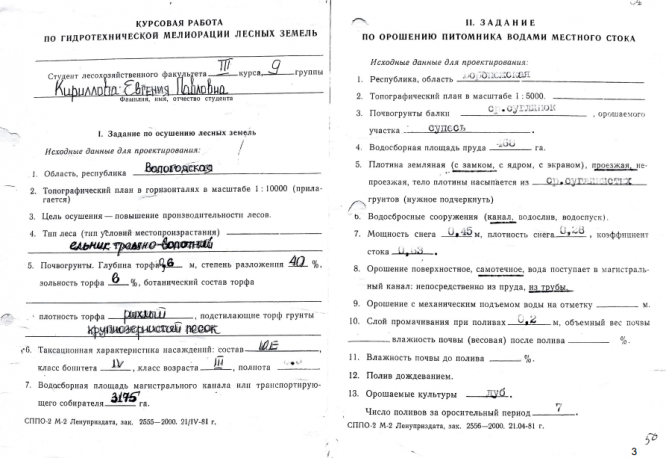 КУРСОВАЯ РАБОТА
ПО ГИДРОТЕХНИЧЕСКОЙ МЕЛИОРАЦИИ ЛЕСНЫХ ЗЕМЕЛЬ
Студент лесохозяйственного факультета III курса, 9 группы
Кириллова Евгения Павловна
Фамилия, имя, отчество студента
I. Задание по осушению лесных земель
Исходные данные для проектирования:
1. Область, республика Вологодская
2. Топографический план в горизонталях в масштабе 1 : 10000 (прила-
гается)
3. Цель осушения — повышение производительности лесов.
4. Тип леса (тип условий местопроизрастания)
ельник травяно-болотный
5. Почвогрунты. Глубина торфа м, степень разложения 40 %,
зольность торфа 6 %, ботанический состав торфа
плотность торфа рыхлый, подстилающие торф грунты
крупнозернистый песок
6. Таксационная характеристика насаждений: состав 10Е,
класс бонитета IV, класс возраста III, полнота
7. Водосборная площадь магистрального канала или транспортирую-
щего собирателя 3175 га.
СППО-2 М-2 Ленуприздата, зак. 2555—2000. 21/IV-81 г.
II. ЗАДАНИЕ
ПО ОРОШЕНИЮ ПИТОМНИКА ВОДАМИ МЕСТНОГО СТОКА
Исходные данные для проектирования:
1. Республика, область
2. Топографический план в масштабе 1 : 5000.
3. Почвогрунты балки ср.суглинок, орошаемого
участка супесь.
4. Водосборная площадь пруда га.
5. Плотина земляная (с замком, с ядром, с экраном), проезжая, не-
проезжая, тело плотины насыпается из ср.суглинистых
грунтов (нужное подчеркнуть)
6. Водосбросные сооружения (канал, водослив, водоспуск).
7. Мощность снега 0,45 м, плотность снега 0,28, коэффициент
стока 0,63.
8. Орошение поверхностное, самотечное, вода поступает в магистраль-
ный канал: непосредственно из пруда, из трубы.
9. Орошение с механическим подъемом воды на отметку м.
10. Слой промачивания при поливах 0,2 м, объемный вес почвы
влажность почвы (весовая) после полива %.
11. Влажность почвы до полива %.
12. Полив дождеванием.
13. Орошаемые культуры дуб.
Число поливов за оросительный период 7.
СППО-2 М-2 Ленуприздата, зак. 2556—2000. 21.04-81 г.
50
3